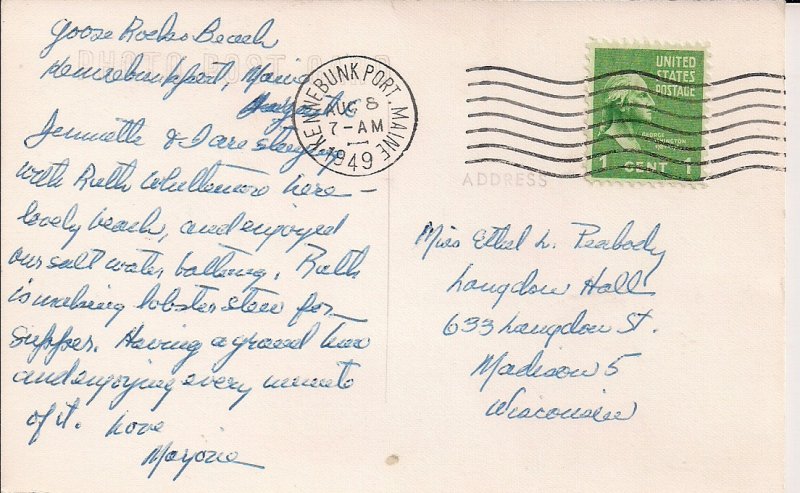 Goose Rocks Beach
PHOTO POST CARD
Kennebunkport, Maine
Jennette & I are staying
with Ruth Whittemore here –
lovely beach, and enjoyed
our salt water bathing. Ruth
is making lobster stew for
supper. Having a grand time
and enjoying every minute
of it. Love
Marjorie
KENNEBUNKPORT. MAINE
AUG 8
7-AM
1949
UNITED
STATES
POSTAGE
GEORGE
WASHINGTON
1 CENT 1
ADDRESS
Miss Ethel L. Peabody
Langdon Hall
633 Langdon St.
Madison 5
Wisconsin